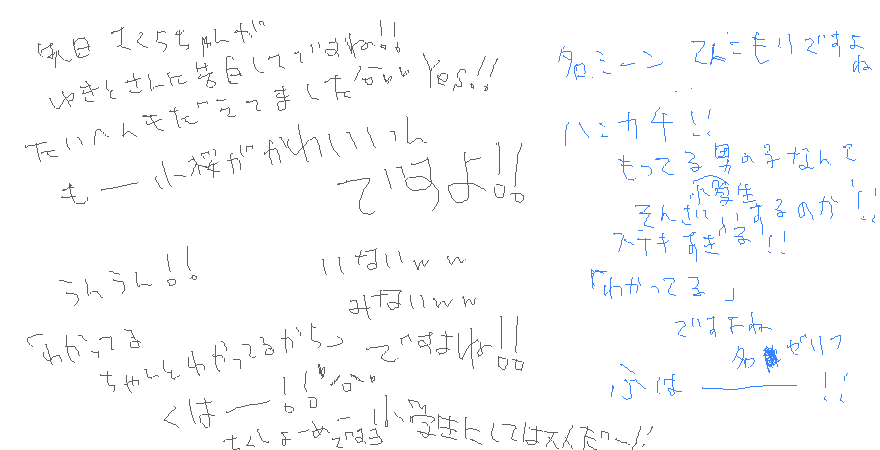 昨日 さくらちゃんが
ゆきとさんに告白してですね!!
たいへんもだえてましたww Yes!!
も—小桜ががわいいん
ですよ!!
うんうん!!
いないww
みないww
「わかってる
ちゃんとわかってるから」
ですよね!!
くは—!!
ちくしょーめ
小学生にしては大人だ〜!!
名シーン てんこもりですよ
ね
ハンカチ!!
もってる男の子なんて
小学生
そんざいするのか!!
ステキすぎる!!
「わかってる」
ですよね
ぶは———!!